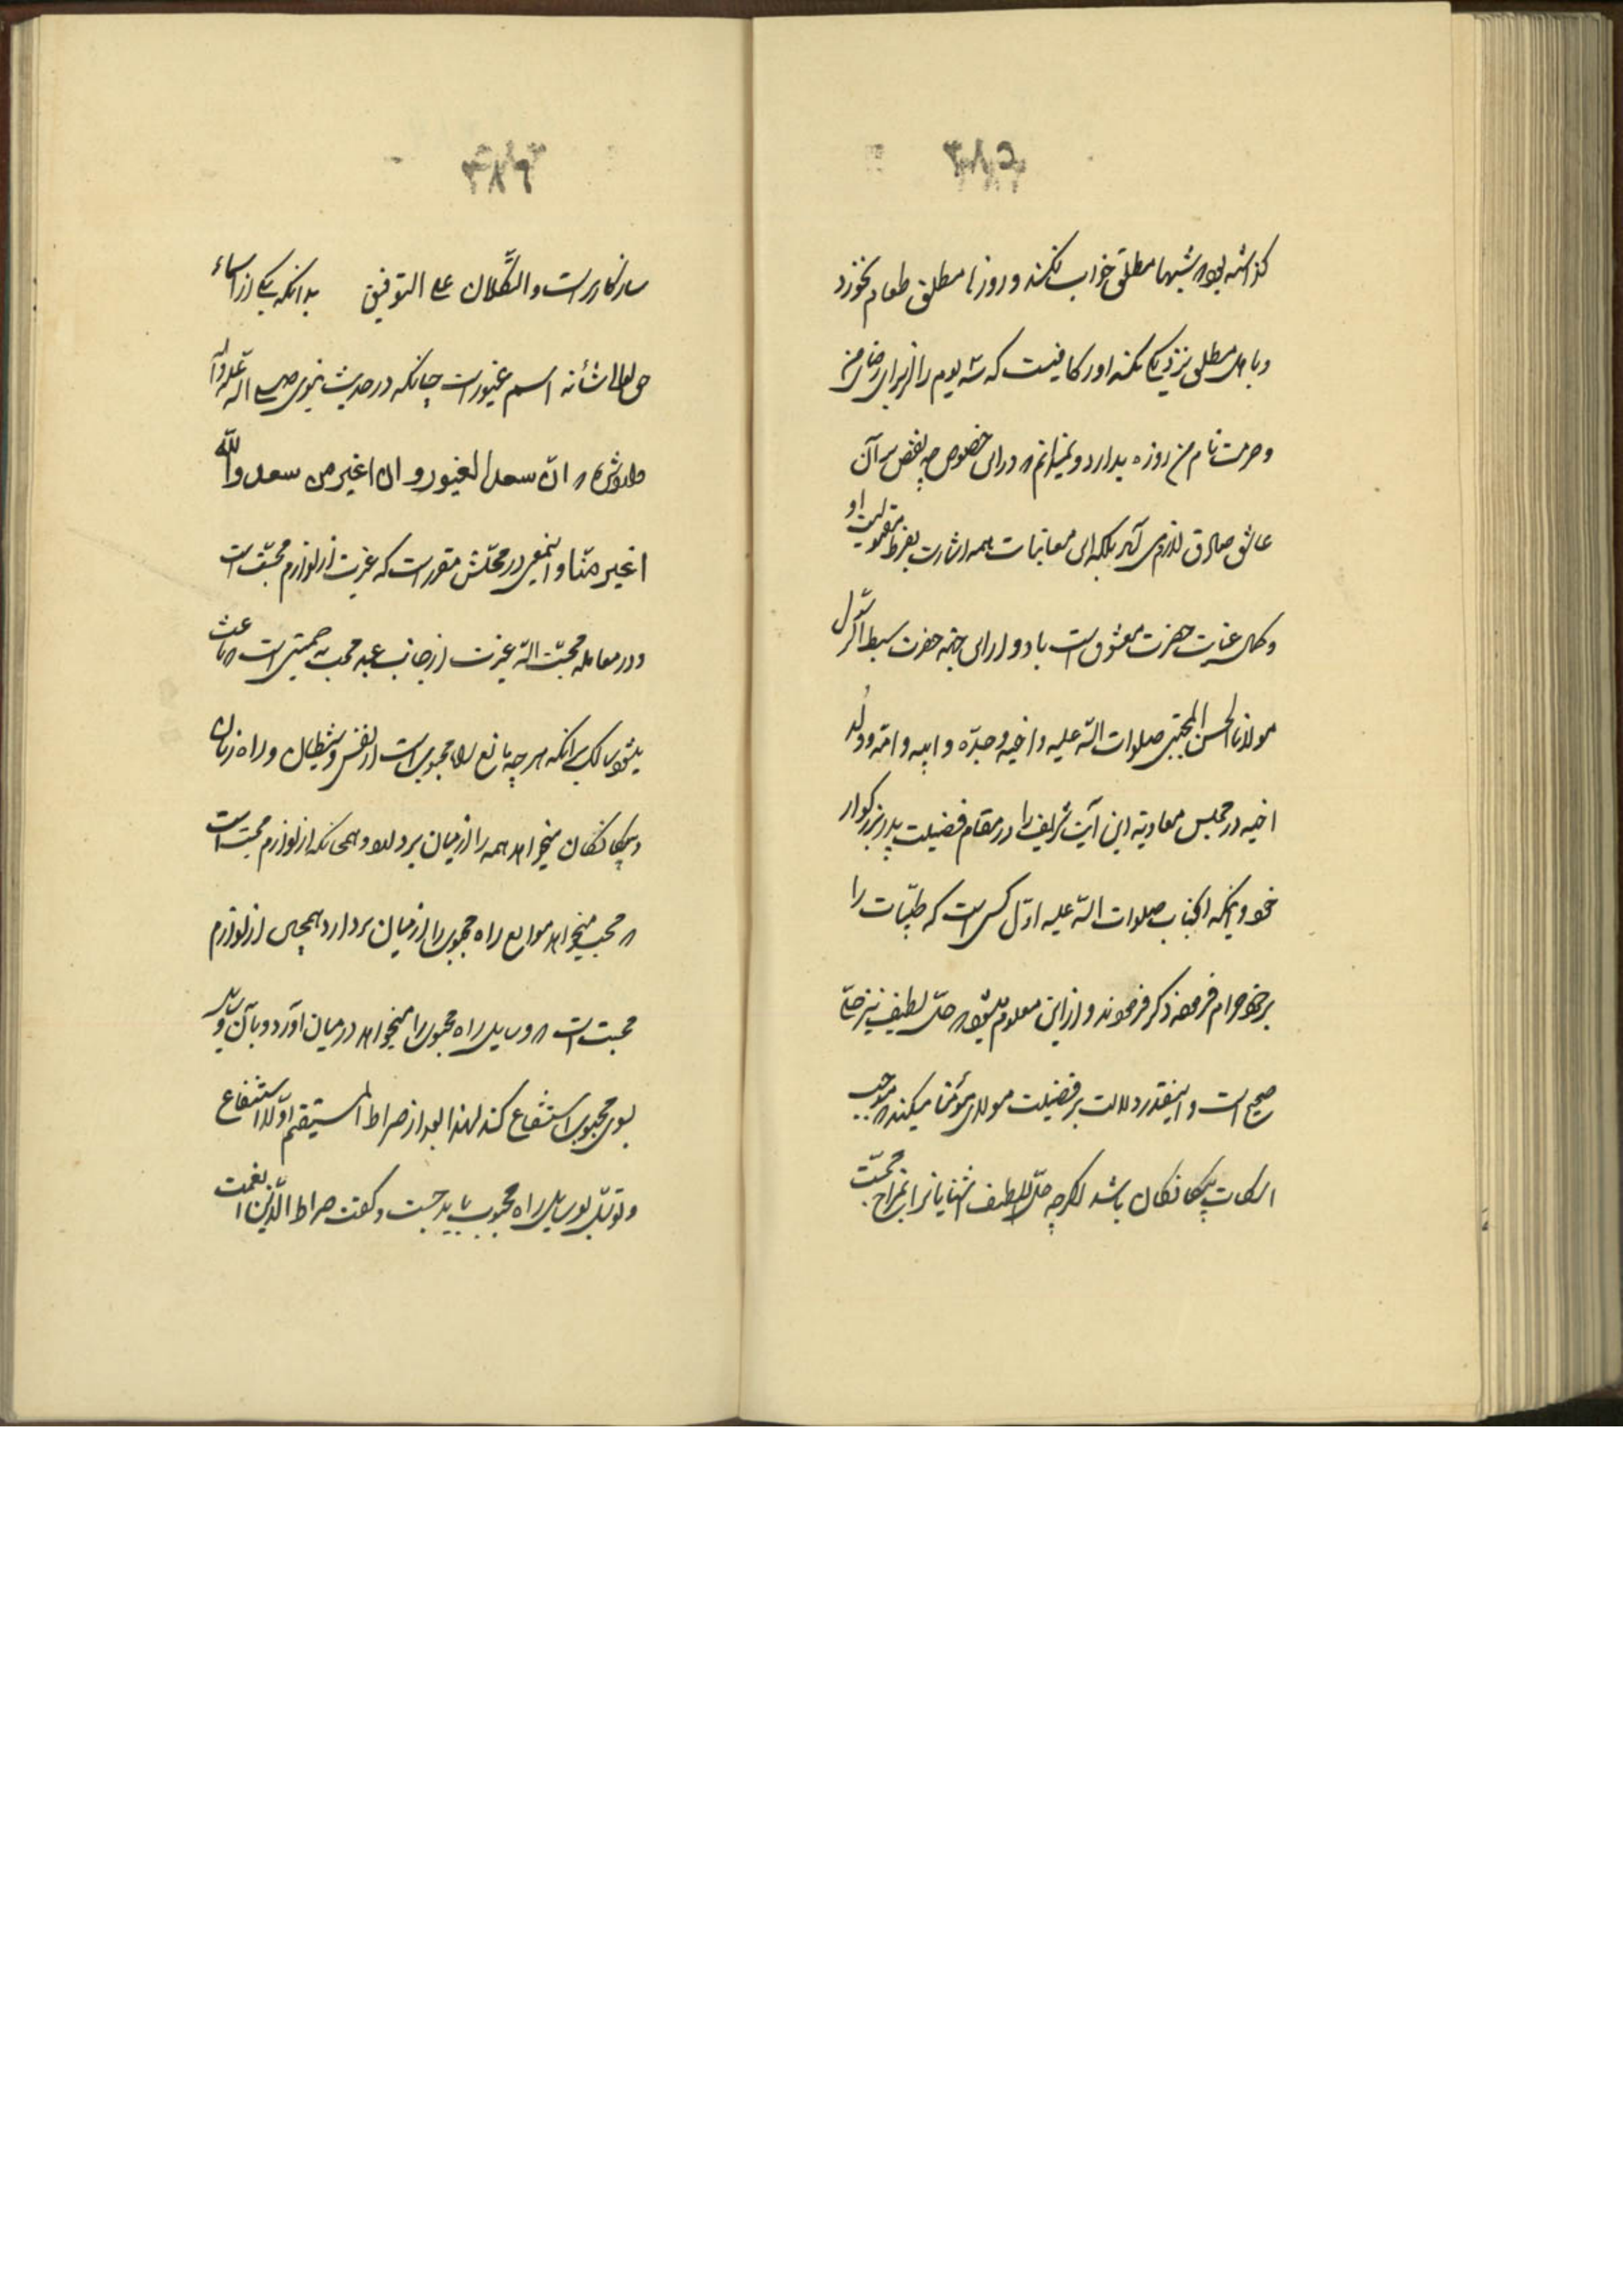 ۳۸۵
گذاشته بود که شبها مطلق خواب نکند و روزها مطلق طعام نخورد
و با اهل مطلق نزدیکی نکند او را کافیست که سه یوم را از برای رضای من
و حرمت نام من روزه بدارد و نمیدانم که در این خصوص چه نقص بر آن
عاشق صادق لازم می آید بلکه این معاتبات همه اشارت بفرط مقبولیت او
و کمال عنایت حضرت معشوق است با او و از این جهة حضرت سبط الرسول
مولانا الحسن المجتبی صلوات الله علیه و اخیه و جده و ابیه و امه و ولد
اخیه در مجلس معاویه این آیت شریف را در مقام فضیلت پدر بزرگوار
خود و اینکه آنجناب صلوات الله علیه اول کسی است که طیبات را
بر خود حرام فرموده ذکر فرمودند و از این معلوم میشود که حتی لطیف نیز حتی
صحیح است و اینقدر دلالت بر فضیلت مولای مؤمنان میکند که موجب
باشد اگرچه
۳۸۶
سازگار است والتکلان علی التوفیق بدانکه یکی از اسماء
حق تعالی شأنه اسم غیور است چنانکه در حدیث نبوی صلی الله علیه وآله
که ان سعدا لغیور و انا اغیر من سعد والله
اغیر منا و اینمعنی در محلش مقرر است که غیرت از لوازم محبت است
و در معامله محبت الله غیرت از جانب عبد محب حمیتی است که باعث
میشود سالک را بر آنکه هر چه مانع راه محبوب است از نفس و شیطان و راه زنان
و بیگانگان میخواهد همه را از میان بردارد و همچنانکه از لوازم محبت است
که محب میخواهد موانع راه محبوب را از میان بردارد همچنین از لوازم
محبت است که وسایل راه محبوب را میخواهد در میان آورد و بآن وسایل
بسوی محبوب استشفاع کند لهذا بعد از صراط المستقیم اولا استشفاع
و توسل بوسایل راه محبوب باید جست و گفت صراط الذین انعمت